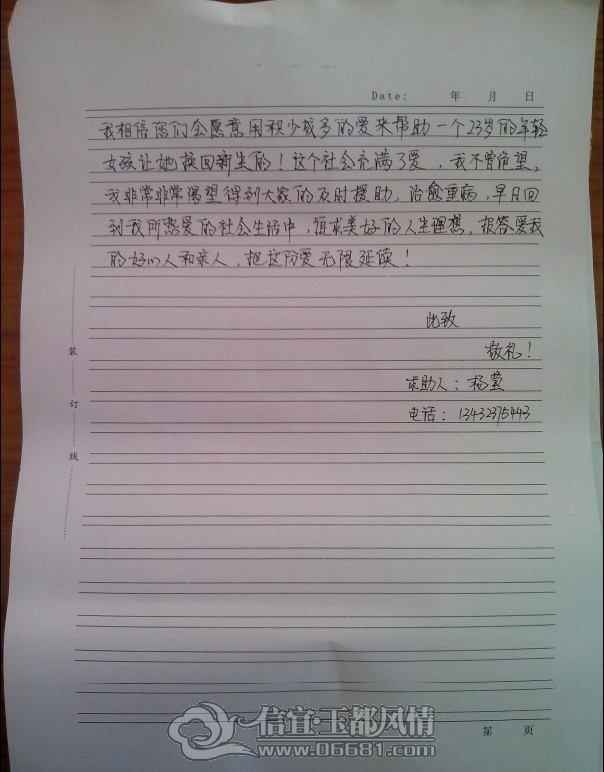 Date: 年 月 日
我相信你们会愿意用积少成多的爱来帮助一个23岁的年轻
女孩让她换回新生的！这个社会充满了爱，我不曾危望。
我非常非常渴望得到大家的及时援助，治愈重病，早日回
到我所热爱的社会生活中，追求美好的人生理想，报答爱我
的好心人和亲人，把这份爱无限延续！
此致
敬礼！
求助人：杨莹
电话：13432375443
装
订
线
第 页
信宜·玉都风情
www.06681.com